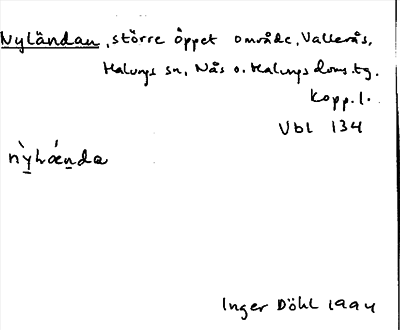 Nyländan, större öppet område, Vallerås,
Malungs sn, Nås o. Malungs doms.tg.
Kopp. l.
Vbl 134
nỳlǽnda
Inger Döhl 1994